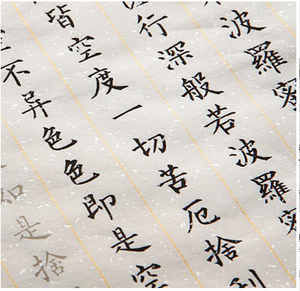 波羅蜜
行深般若波羅蜜
皆空度一切苦厄捨利
不异色色即是空
如是捨